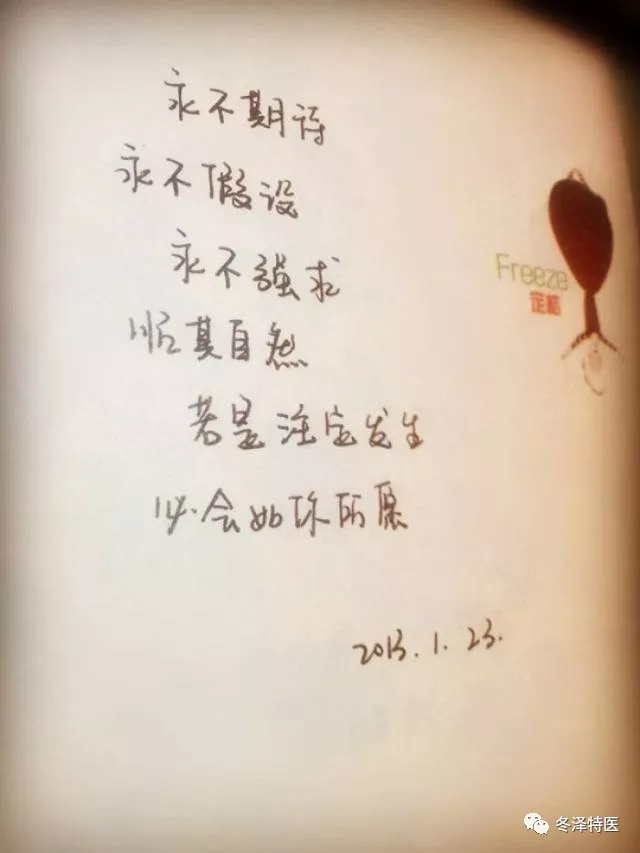 永不期待
永不假设
永不强求
顺其自然
若是注定发生
必会如你所愿
2013.1.23.
Freeze
定格
冬泽特医